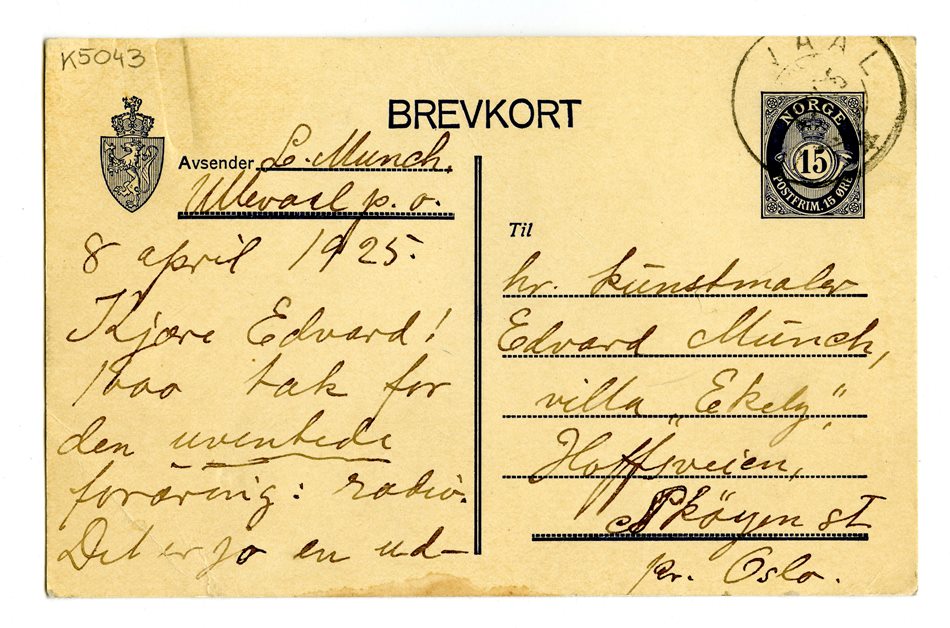 K5043
BREVKORT
Avsender L. Munch,
Ullevaal p. o.
8 april 1925.
Kjære Edvard!
1000 tak for
den uventede
foræring: radio.
Det er jo en ud-
NORGE
15
POSTFRIM. 15 ØRE
Til
hr. kunstmaler
Edvard Munch,
villa „Ekely”,
Hoffsveien,
Skøyen st
pr. Oslo.